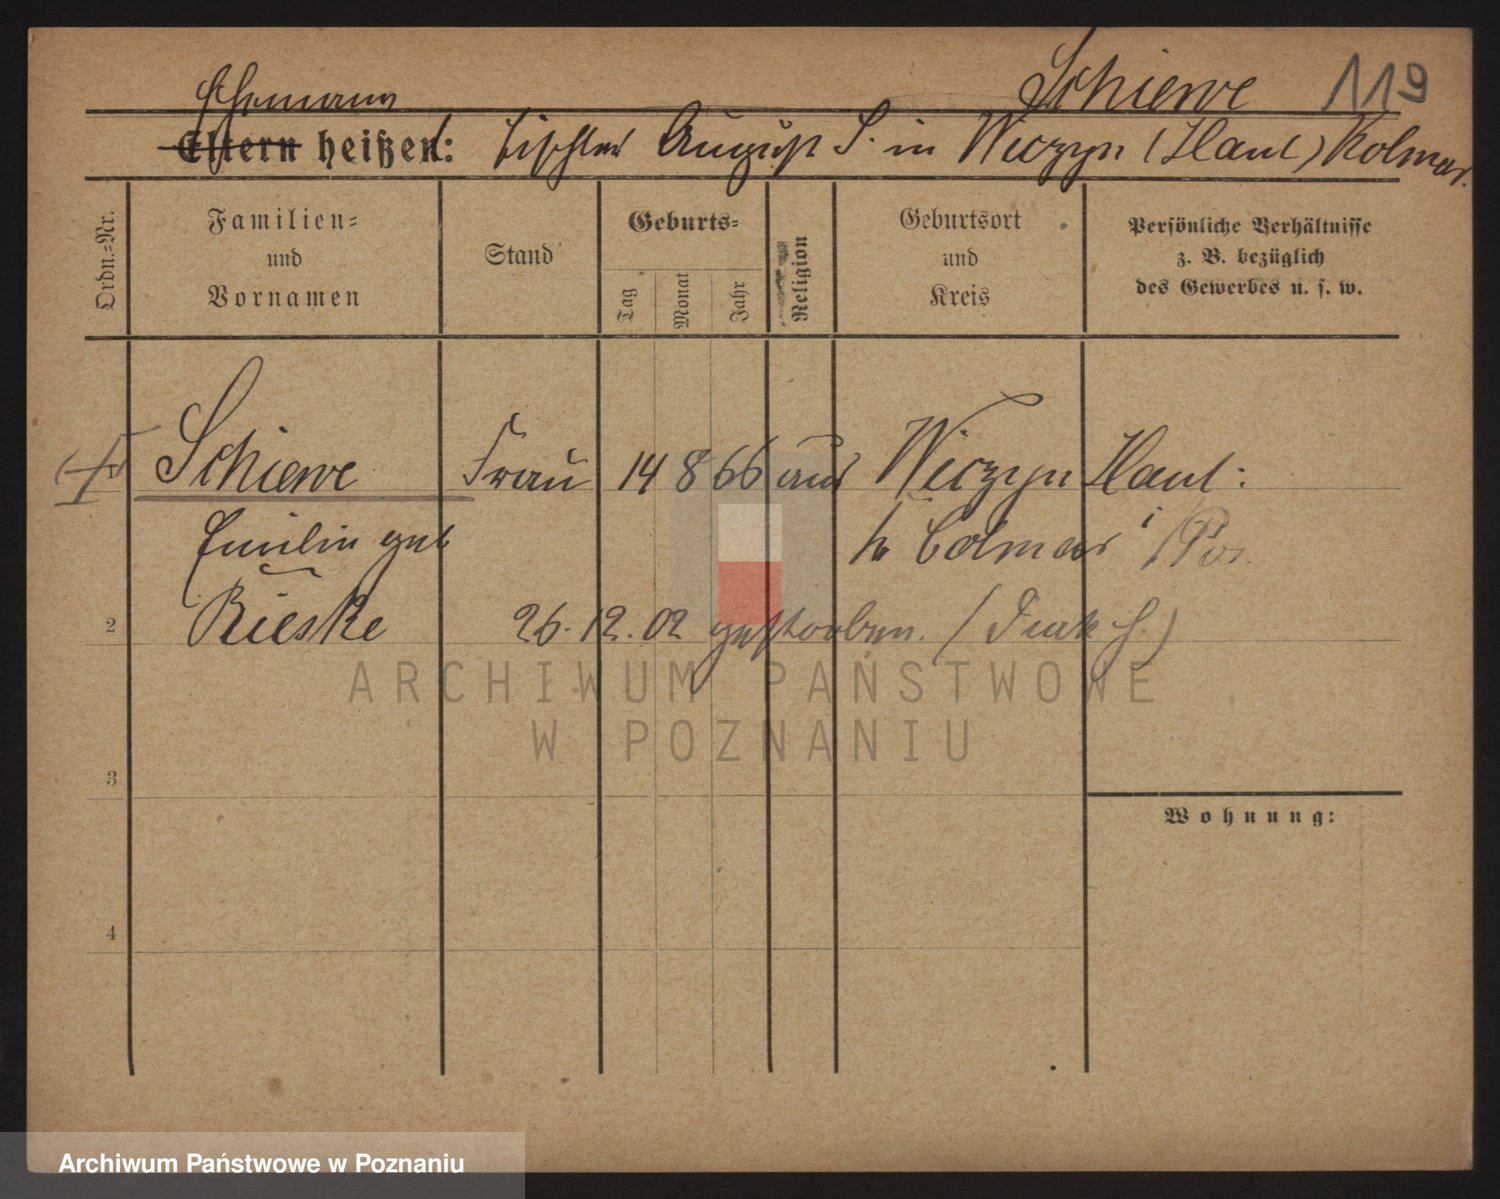 Schiewe 119
Ehemann
Eltern heißen: Tischler August S. in Wiczyn (Haul) Kolmar.
Ordn.-Nr.
Familien-
und
Vornamen
Stand
Geburts-
Tag
Monat
Jahr
Religion
Geburtsort
und
Kreis
Persönliche Verhältnisse
z. B. bezüglich
des Gewerbes u. s. w.
Schiewe Frau 14 8 66 aus Wiczyn Haul:
Emilie geb Colmar i/Pos.
2 Rieske 26.12.02 gestorben.
ARCHIWUM PAŃSTWOWE
W POZNANIU
3
Wohnung:
4
Archiwum Państwowe w Poznaniu